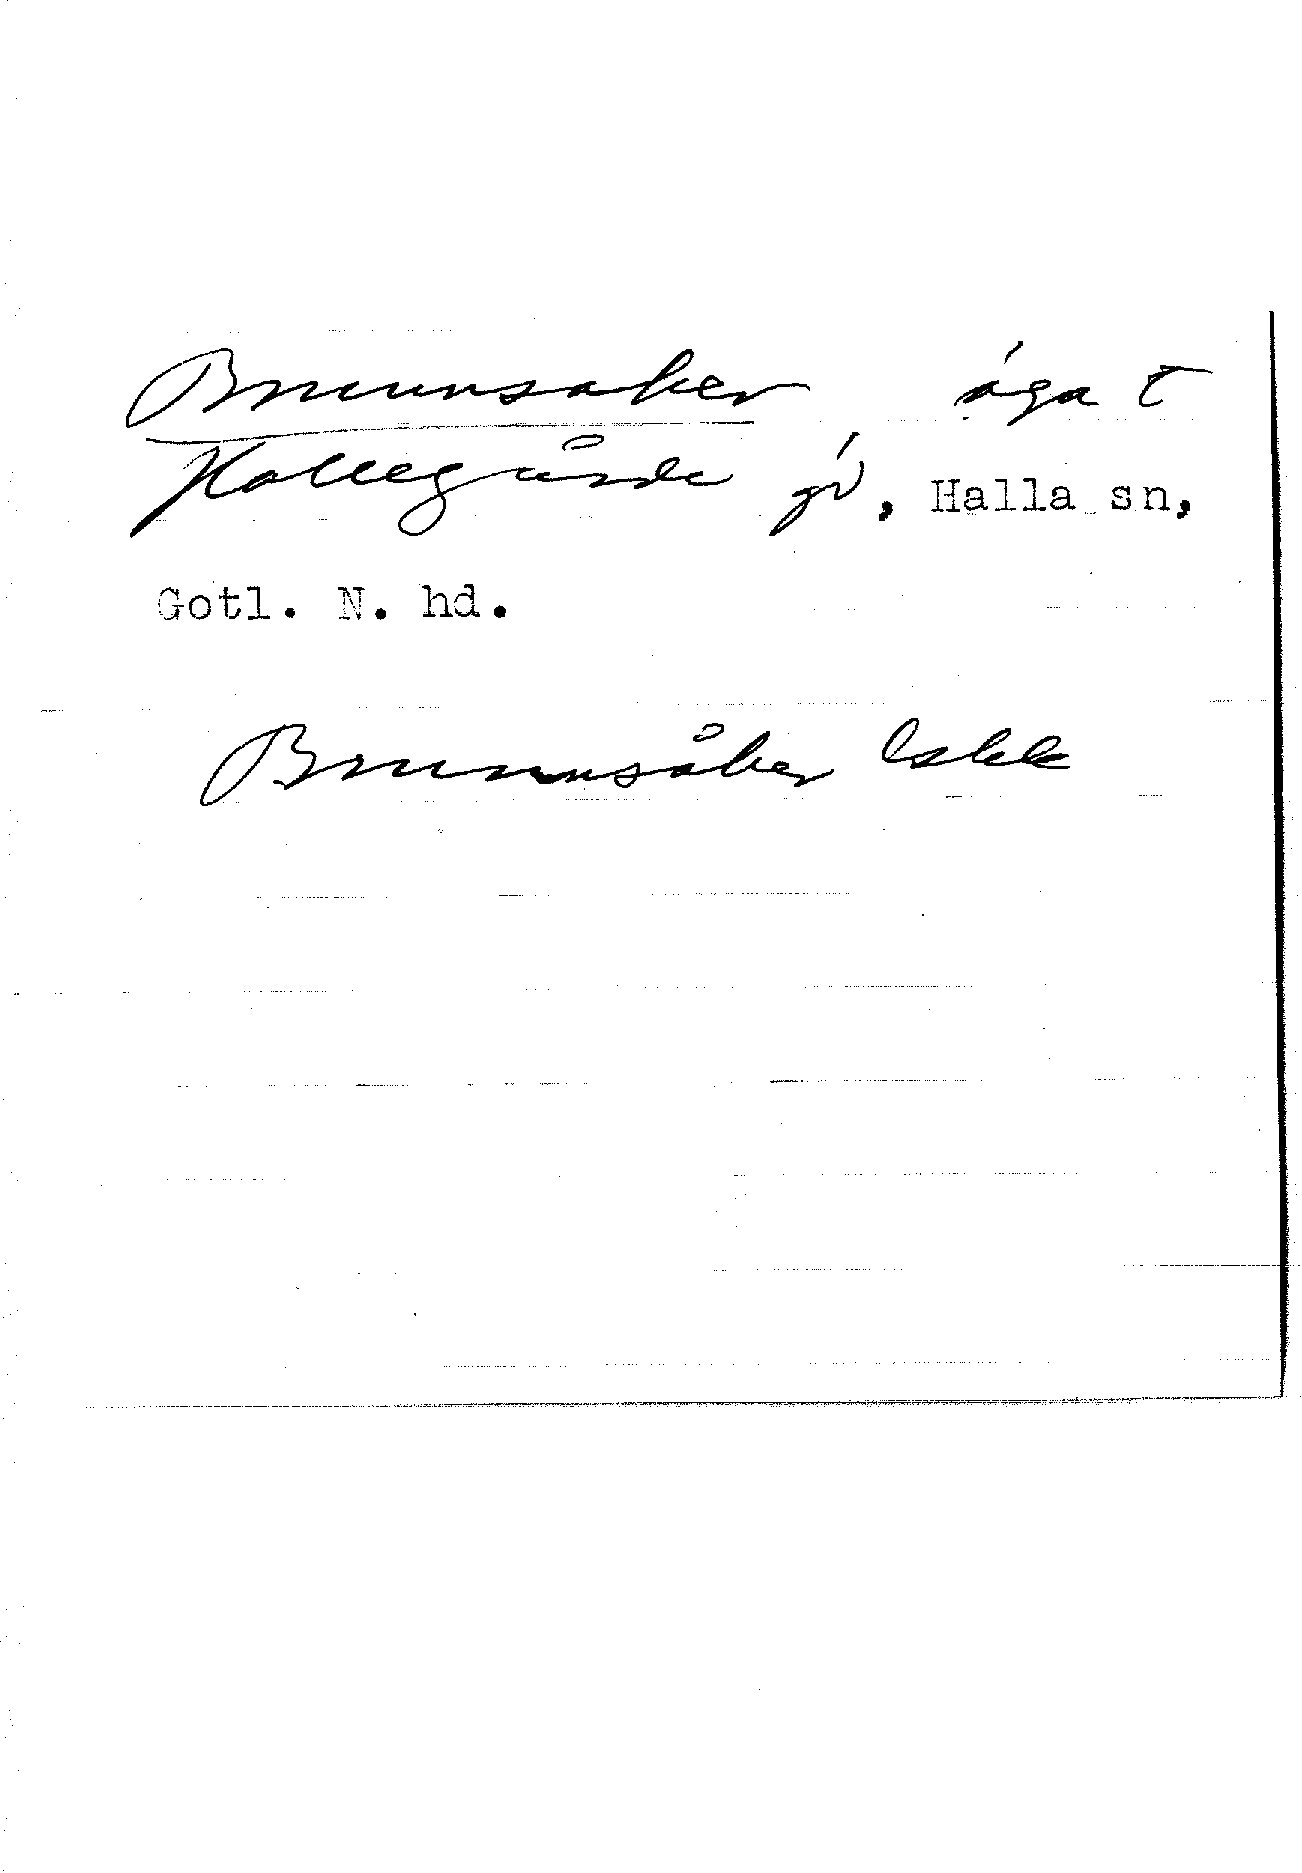 Brunnsaker äga t
Hallegårda gd, Halla sn,
Gotl. N. hd.
Brunnsåker Lskk